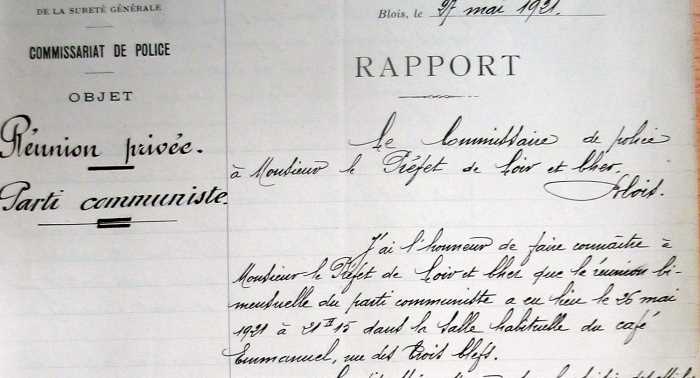 DE LA SURETÉ GÉNÉRALE
COMMISSARIAT DE POLICE
OBJET
Réunion privée.
Parti communiste.
Blois, le 27 mai 1921.
RAPPORT
Le Commissaire de police
à Monsieur le Préfet de Loir et Cher,
Blois.
J'ai l'honneur de faire connaître à
Monsieur le Préfet de Loir et Cher que la réunion bi-
mensuelle du parti communiste a eu lieu le 26 mai
1921 à 21 H 15 dans la salle habituelle du café
Emmanuel, rue des Trois Clefs.